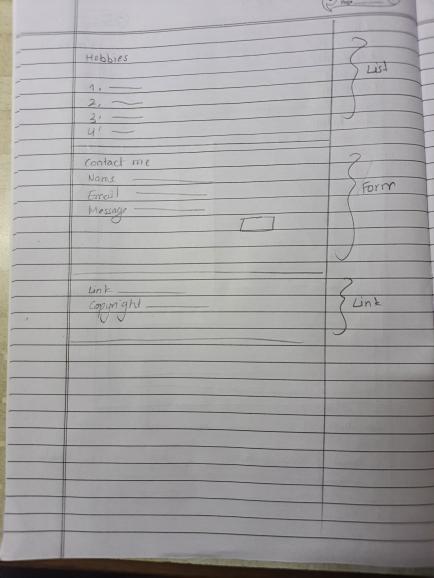 Page
Hobbies
1.
2.
3.
4.
List
Contact me
Name
Email
Message
Form
Link
Copyright
Link